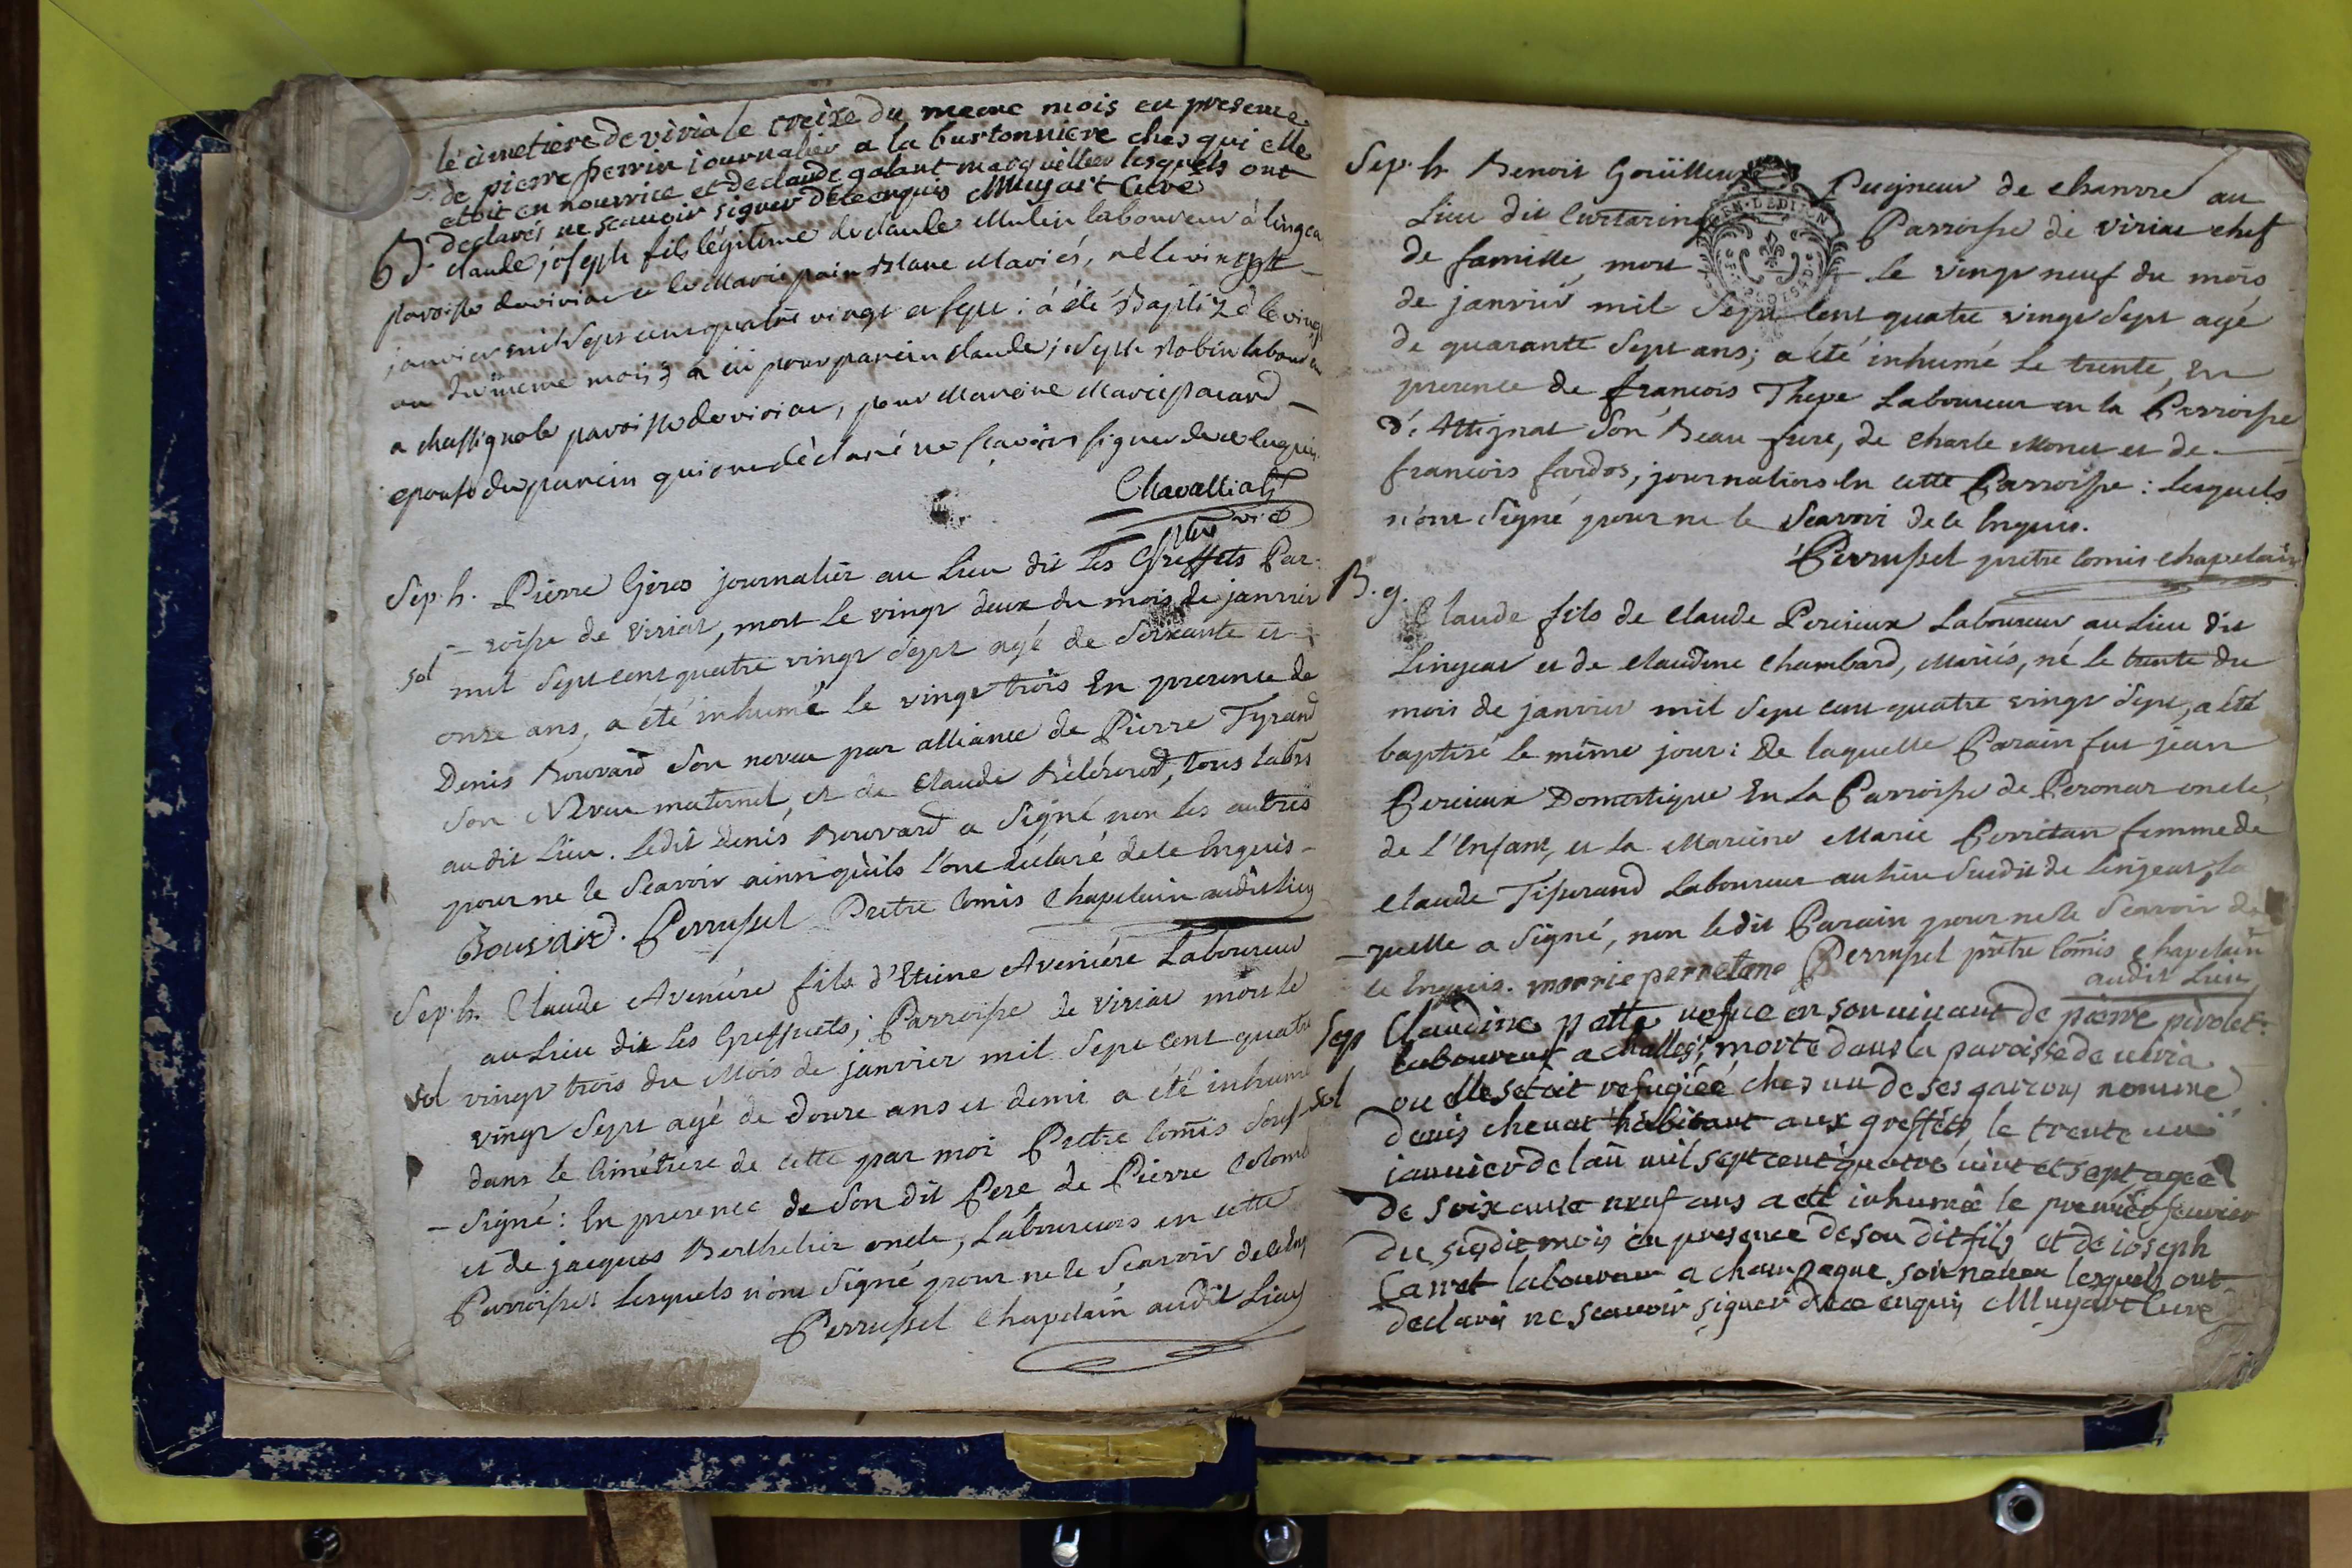 le cimetiere de viria le treize du meme mois en presence
de pierre perrin journalier a la burtonniere ches qui elle
etoit en nourrice et de claude galant marguillier lesquels ont
declarés ne scauoir signer de ce enquis Muyart Curé
B. claude joseph fils légitime de claude Mulin laboureur à lingea
paroisse de viriac et de Marie pain blanc Mariés, né le vingt
janvier mil sept cent quatre vingt et sept : a été Baptizé le vingt
un du meme mois à eu pour parein claude joseph Robin laboureur
a chassignole paroisse de viriac, pour Mareine Marie pacard
epouse du parein qui ont déclaré ne sçavoir signer de ce enquis
Chavalliat
vic
Sep. h. Pierre Géros journalier au Lieu dit les Greffets Par-
roisse de Viriat, mort le vingt deux du mois de janvier
sol mil sept cent quatre vingt sept agé de soixante et
onze ans, a été inhumé le vingt trois En presence de
Denis Bouvard son neveu par alliance de Pierre Tyrand
son Neveu maternel, et de Claude tous labrs
au dit Lieu. Ledit Denis Bouvard a signé non les autres
pour ne le Scavoir ainsi qu'ils l'ont déclaré de ce Enquis
Bouvard. Perrussel Pretre Comis Chapelain audit lieu
Sep. h. Claude Aveniére fils d'Etiene Aveniére Laboureur
au Lieu dit Les Greffets, Parroisse de Viriat mort le
sol vingt trois du Mois de janvier mil Sept Cent quatre
vingt Sept agé de douze ans et demi a été inhumé
dans le Cimetiere de cette par moi Pretre Comis Sous
signé : En presence de Son dit Pere de Pierre Colomb
et de jacques Berthelier oncle, Laboureurs en cette
Parroisse : Lesquels n'ont Signé pour ne le Scavoir de ce Enq
Perrussel Chapelain audit Lieu
Sep. h. Benoit Goüilleux Peigneur de chanvre au
Lieu dit Curtaring Parroisse de Viriat chef
de famille, mort le vingt neuf du mois
de janvier mil Sept Cent quatre vingt Sept agé
de quarante Sept ans ; a été inhumé le trente, En
presence de françois Thepe Laboureur en la Parroisse
d'Attignat Son Beau-frere, de Charle Monet et de
francois fardos, journaliers En cette Parroisse : Lesquels
n'ont Signé pour ne le Scavoir de ce Enquis.
Perrussel pretre Comis Chapelain
B. g. Claude fils de Claude Perieux Laboureur au Lieu dit
Lingeat et de Claudine Chambard, Mariés, né le trente du
mois de janvier mil Sept cent quatre vingt Sept, a été
baptisé le même jour : De laquelle Parain fut jean
Perieux Domestique En La Parroisse de Peronas oncle
de l'Enfant, et la Mareine Marie Perretan femme de
Claude Tisserand Laboureur au Lieu Susdit de Lingeat, la
quelle a Signé, non ledit Parain pour ne le Scavoir de
ce Enquis. marrie perretane Perrussel pretre Comis Chapelain
audit Lieu
Sep Claudine patte vefue en son uiuant de pierre pirolet
laboureur a challes, morte dans la paroisse de uiria
sol ou elle setoit refugiéé ches un de ses garcons nommé
denis chenat habitant aux greffets, le trente un
januier de lan mil sept cent quatre uint et sept ageé
de soixante neuf ans a eté inhumeé le premier feurier
du susdit mois en presence de son dit fils et de ioseph
Carret laboureur a champagne son neueu lesquels ont
declaré ne scauoir signer de ce enquis Muyart Curé